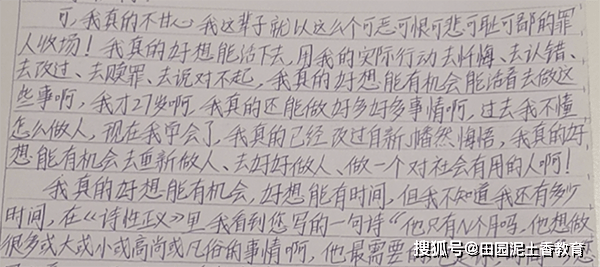 可,我真的不甘心我这辈子就以这么个可恶可恨可悲可耻可鄙的罪
人收场!我真的好想能活下去,用我的实际行动去忏悔、去认错、
去改过、去赎罪、去说对不起,我真的好想能有机会能活着去做这
些事啊,我才27岁啊,我真的还能做好多好多事情啊,过去我不懂
怎么做人,现在我学会了,我真的已经改过自新、幡然悔悟,我真的好
想能有机会去重新做人、去好好做人、做一个对社会有用的人啊!
我真的好想能有机会,好想能有时间,但我不知道我还有多少
时间,在《诗性正义》里我看到您写的一句诗“他只有N个月吗,他想做
很多或大或小或高尚或凡俗的事情啊,他最需要的
搜狐号@田园泥土香教育